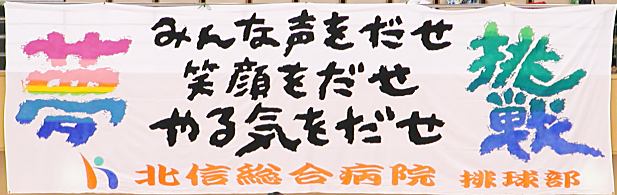 夢
みんな声をだせ
笑顔をだせ
やる気をだせ
挑戦
北信総合病院 排球部